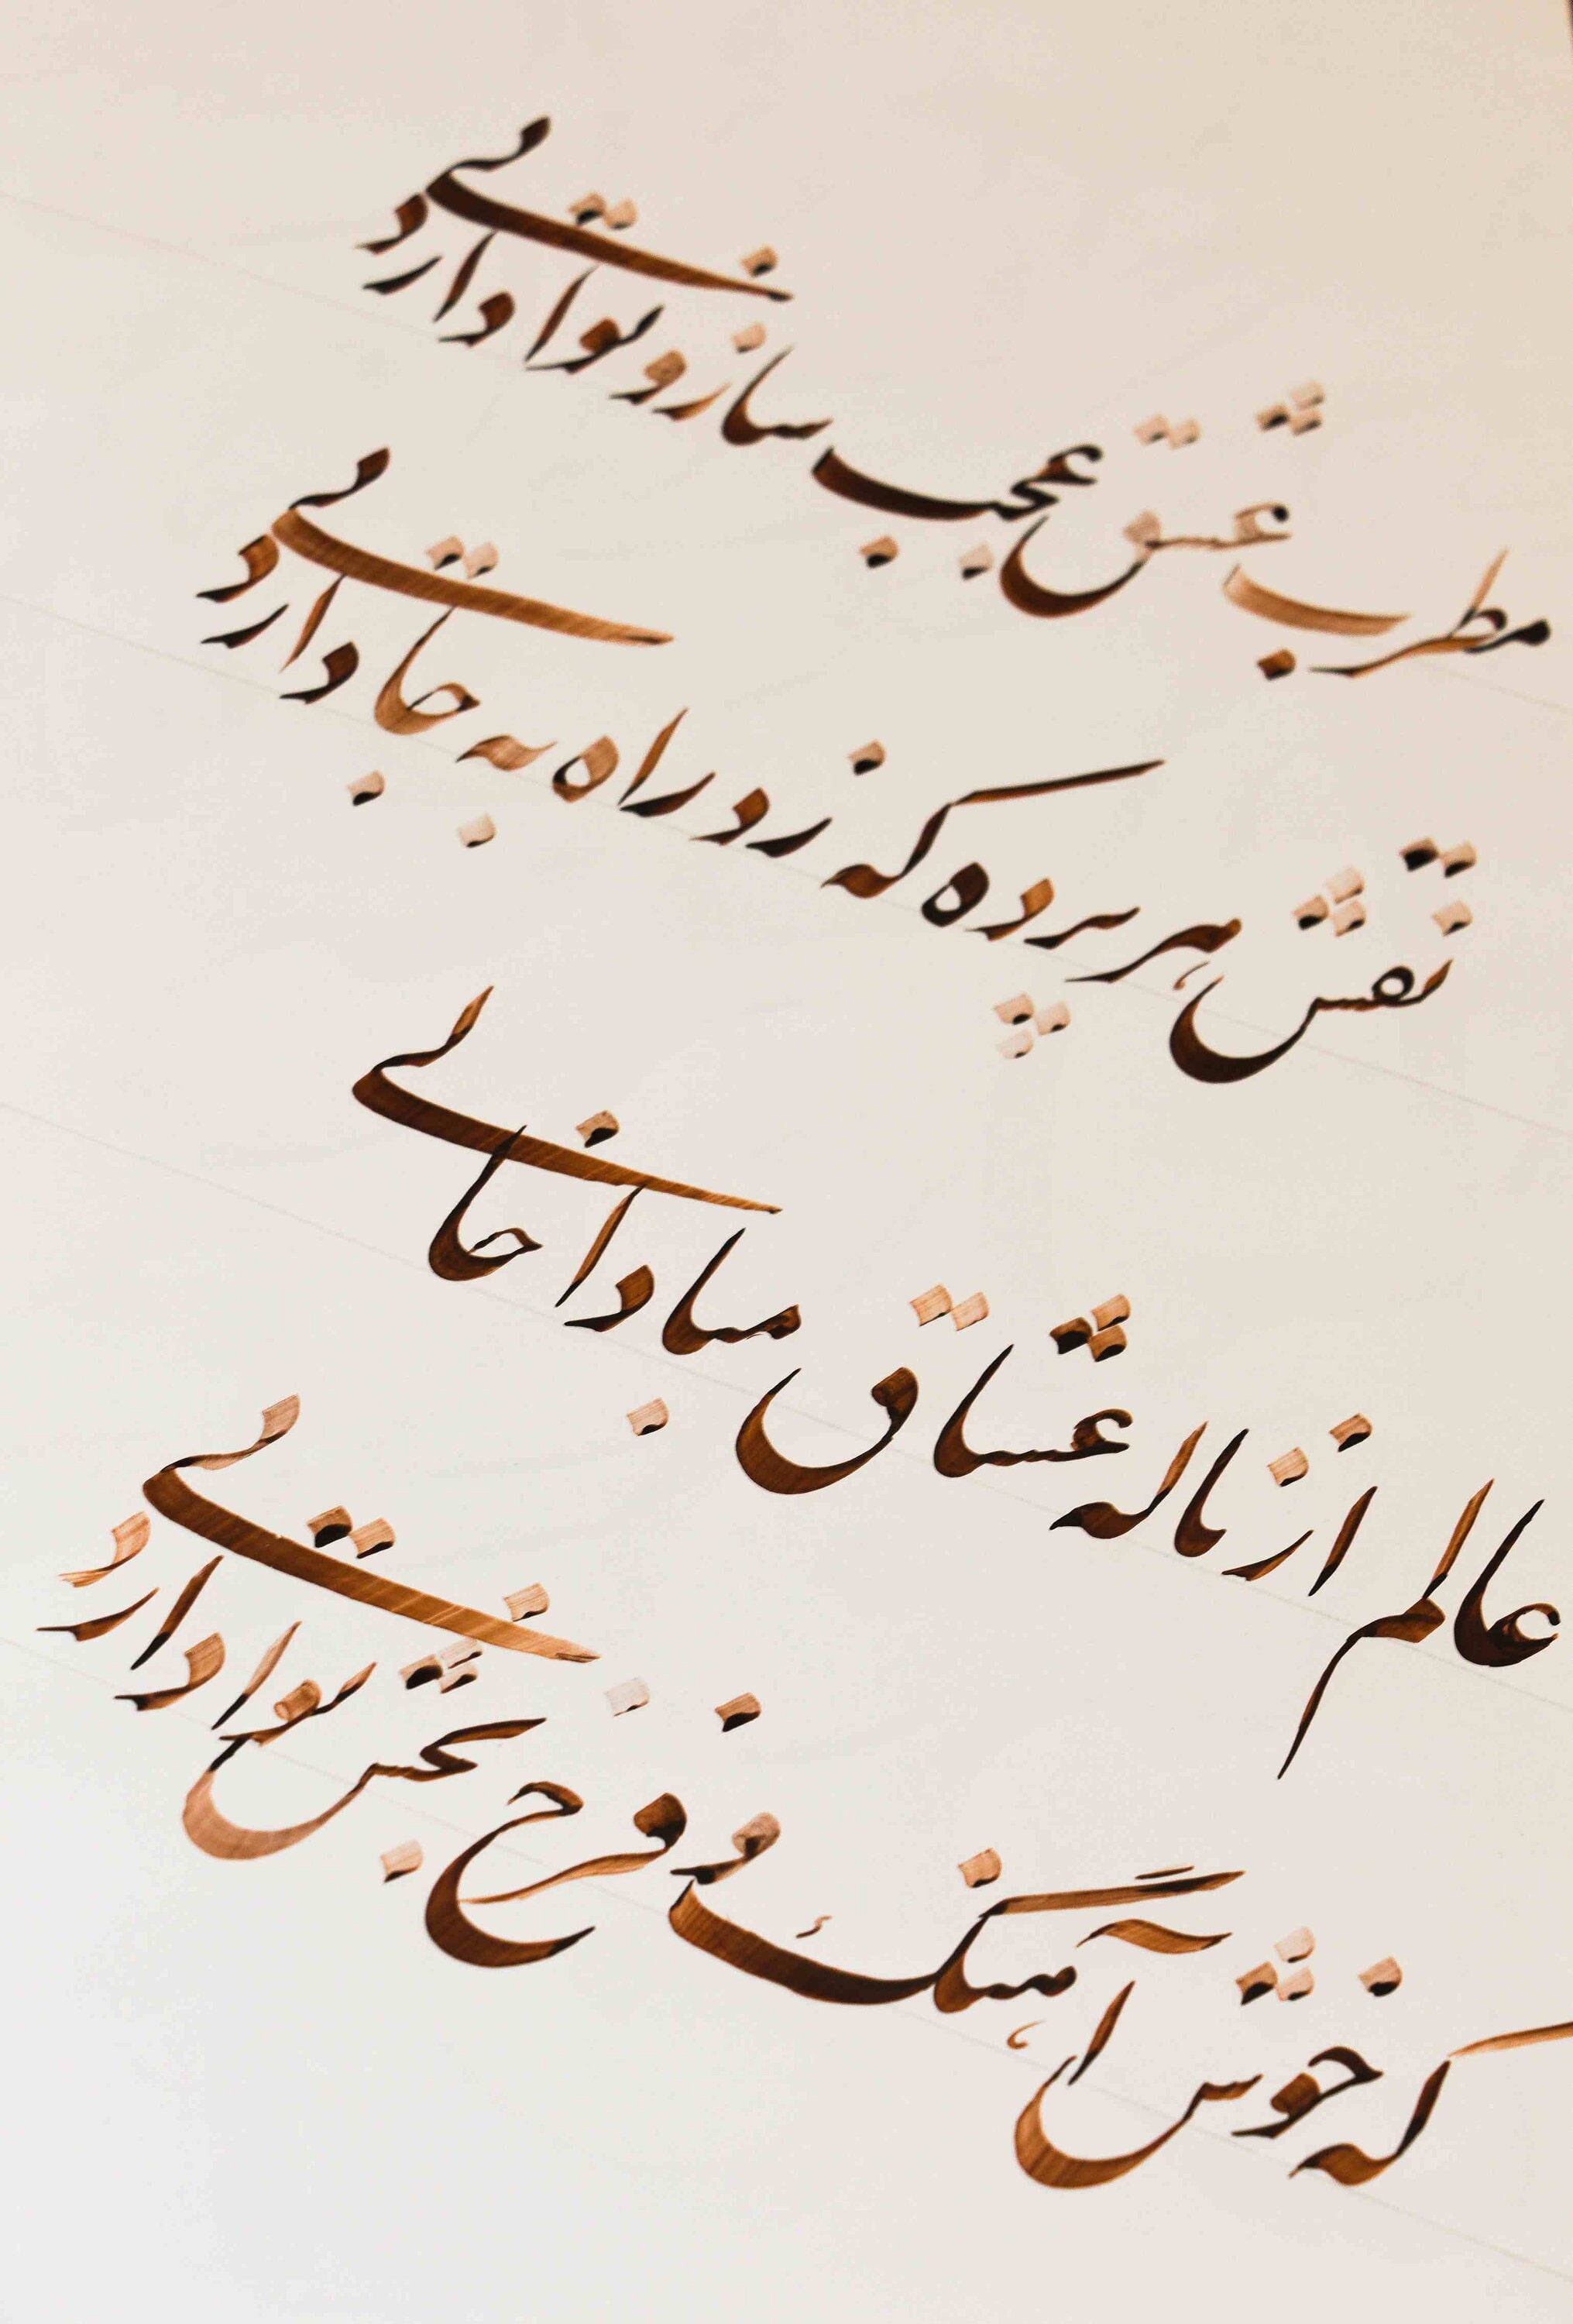 مطرب عشق عجب ساز و نوایی دارد
نقش هر پرده که زد راه به جایی دارد
عالم از ناله عشاق مبادا خالی
که خوش آهنگ و فرح بخش نوایی دارد